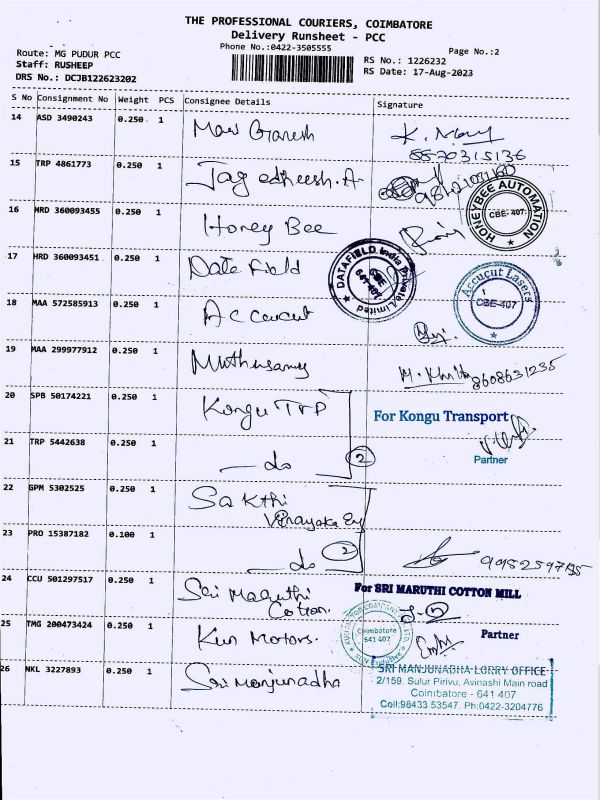 THE PROFESSIONAL COURIERS, COIMBATORE
Delivery Runsheet - PCC
Phone No.:0422-3505555
Page No.:2
Route: MG PUDUR PCC
Staff: RUSHEEP
DRS No.: DCJB122623202
RS No.: 1226232
RS Date: 17-Aug-2023
S No Consignment No Weight PCS Consignee Details Signature
14 ASD 3490243 0.250 1 Mani Ganesh K. Mani
8570315136
15 TRP 4861773 0.250 1 Jagedheesh.A
HONEYBEE AUTOMATION
CBE-407.
16 MRD 360093455 0.250 1 Honey Bee
17 HRD 360093451 0.250 1 Data Field
DATAFIELD India Private Limited
CBE
641 407
Accucut Lasers
CBE-407
18 MAA 572585913 0.250 1 Accucut
19 MAA 299977912 0.250 1 Muthusamy 8608631235
20 SPB 50174221 0.250 1 Kongu TRP
For Kongu Transport
Partner
21 TRP 5442638 0.250 1 do 2
22 GPM 5302525 0.250 1 Sakthi
Vinayaka
23 PRO 15387182 0.100 1 do 2
24 CCU 501297517 0.250 1 Sri Maruthi
Cotton.
For SRI MARUTHI COTTON MILL
Partner
25 TMG 200473424 0.250 1 Kun Motors.
Coimbatore
641 407
26 NKL 3227893 0.250 1 Sri Manjunadha
SRI MANJUNADHA LORRY OFFICE
2/159, Sulur Pirivu, Avinashi Main road
Coimbatore - 641 407
Coll:98433 53547. Ph:0422-3204776